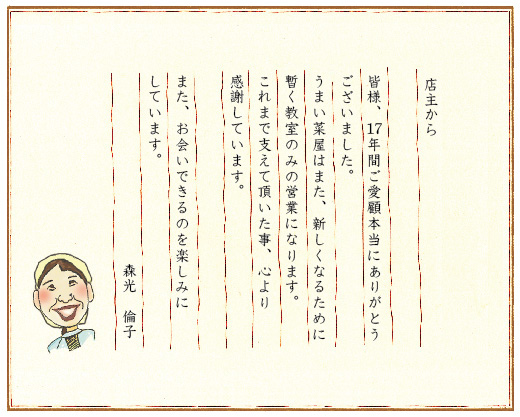 店主から
皆様、17年間ご愛顧本当にありがとう
ございました。
うまい菜屋はまた、新しくなるために
暫く教室のみの営業になります。
これまで支えて頂いた事、心より
感謝しています。
また、お会いできるのを楽しみに
しています。
森光 倫子